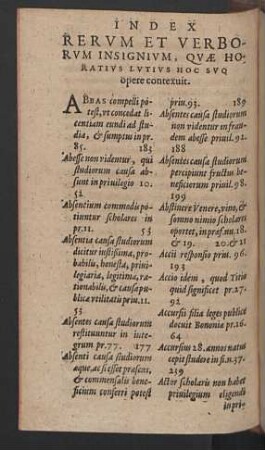 INDEX
RERVM ET VERBO-
RVM INSIGNIVM, QVÆ HO-
RATIVS LVTIVS HOC SVO
opere contexuit.
ABBAS compelli po-
test, vt concedat li-
centiam eundi ad stu-
dia, & sumptu in pr.
85. 183
Abesse non videntur, qui
studiorum causa ab-
sunt in priuilegio 10.
52
Absentium commodis po-
tiuntur scholares in
pr. 11. 53
Absentia causa studiorum
dicitur iustissima, pro-
babilis, honesta, priui-
legiaria, legitima, ra-
tionabilis, & causa pu-
blicæ vtilitatis priu. 11.
53
Absentes causa studiorum
restituuntur in inte-
grum pr. 77. 177
Absenti causa studiorum
æque, ac si esset præsens,
& commensalis bene-
ficium conferri potest
priu. 93. 189
Absentes causa studiorum
non videntur in frau-
dem abesse priuil. 92.
188
Absentes causa studiorum
percipiunt fructus be-
neficiorum priuil. 98.
199
Abstinere Venere, vino, &
somno nimio scholares
oportet, in præf. nu. 18.
& 19. 20. & 21
Accij responsio priu. 96.
193
Actio idem, quod Titio
quid significet pr. 27.
92
Accursij filia leges publice
docuit Bononiæ pr. 26.
64
Accursius 28. annos natus
cepit studere in fi. n. 37.
259
Actor scholaris non habet
priuilegium eligendi
in pri-